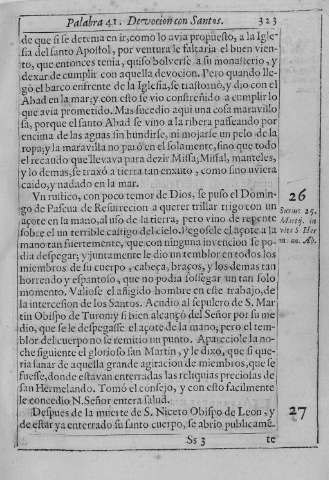 Palabra 41. Devocion con Santos. 323
de que si se detenia en ir, como lo avia propuesto, a la Igle-
sia del santo Apostol, por ventura le faltaria el buen vien-
to, que entonces tenia, quiso bolverse a su monasterio, y
dexar de cumplir con aquella devocion. Pero quando lle-
gò el barco enfrente de la Iglesia, se trastornò, y dio con el
Abad en la mar: y con esto se vio constreñido a cumplir lo
que avia prometido. Mas sucedio aqui una cosa maravillo
sa, porque el santo Abad se vino a la ribera passeando por
encima de las aguas sin hundirse, ni mojarse un pelo de la
ropa; y la maravilla no parò en el solamente, sino que todo
el recaudo que llevava para dezir Missa, Missal, manteles,
y lo demas, se traxò a tierra tan enxuto, como sino uviera
caido, y nadado en la mar.
Vn rustico, con poco temor de Dios, se puso el Domin-
go de Pascua de Resurreccion a querer trillar trigo con un
açote en la mano, al uso de la tierra, pero vino de repente
sobre el un terrible castigo del cielo. Pegosele el açote a la
mano tan fuertemente, que con ninguna invencion se po-
dia despegar; y juntamente le dio un temblor en todos los
miembros de su cuerpo, cabeça, braços, y los demas tan
horrendo y espantoso, que no podia sossegar un tan solo
momento. Valiose el afligido hombre en este trabajo, de
la intercesion de los Santos. Acudio al sepulcro de S. Mar
tin Obispo de Turon; y si bien alcançò del Señor por su me
dio, que se le despegasse el açote de la mano; pero el tem-
blor del cuerpo no se remitio un punto. Apareciole la no-
che siguiente el glorioso san Martin, y le dixo, que si que-
ria sanar de aquella grande agitacion de miembros, que se
fuesse, donde estavan enterradas las reliquias preciosas de
san Hermelando. Tomò el consejo, y con esto facilmente
le concedio N. Señor entera salud.
Despues de la muerte de S. Niceto Obispo de Leon, y
de estar ya enterrado su santo cuerpo, se abrio publicamẽ-
Ss 3 te
26
Surius 25.
Martij. in
vita S. Her
m. an. Ab.
27